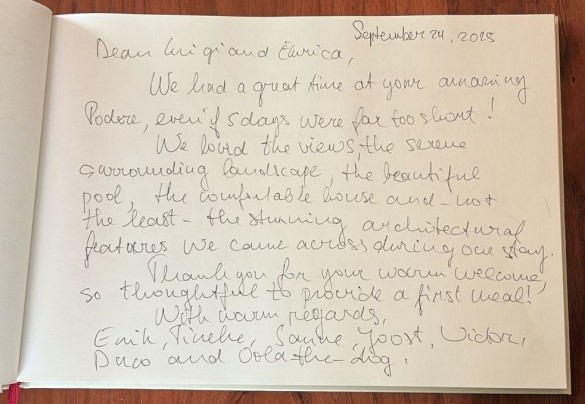 September 24, 2025
Dear Luigi and Enrica,
We had a great time at your amazing
Podere, even if 5 days were far too short!
We loved the views, the serene
surrounding landscape, the beautiful
pool, the comfortable house and - not
the least - the stunning architectural
features we came across during our stay.
Thank you for your warm welcome,
so thoughtful to provide a first meal!
With warm regards,
Erik, Tineke, Sanne, Joost, Victor,
and the dog.